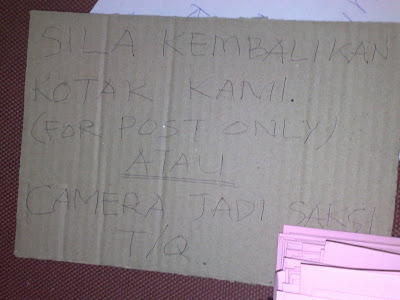 SILA KEMBALIKAN
KOTAK KAMI.
(FOR POST ONLY)
ATAU
CAMERA JADI SAKSI
T/Q